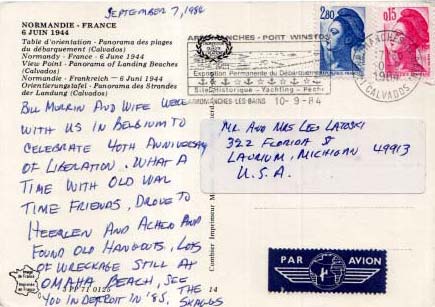 SEPTEMBER 7, 1984
NORMANDIE - FRANCE
6 JUIN 1944
Table d'orientation - Panorama des plages
du débarquement (Calvados)
Normandy - France - 6 June 1944
View Point - Panorama of Landing Beaches
(Calvados)
Normandie - Frankreich - 6 Juni 1944
Orientierungstafel - Panorama des Strandes
der Landung (Calvados)
BILL MURRIN AND WIFE WERE
WITH US IN BELGIUM TO
CELEBRATE 40TH ANNIVERSARY
OF LIBERATION. WHAT A
TIME WITH OLD WAR
TIME FRIENDS, DROVE TO
HEERLEN AND ACHEN AND
FOUND OLD HANGOUTS, LOTS
OF WRECKAGE STILL AT
OMAHA BEACH, SEE
YOU IN DETROIT IN '85, THE
SKAGGS
3 PP 71 0126
14
Combier Imprimeur
ARROMANCHES - PORT WINSTON
Exposition Permanente du Débarquement
Site Historique - Yachting - Pêche
ARROMANCHES LES BAINS 10-9-84
2,80
0,15
CALVADOS
MR AND MRS LES LATOSKI
322 FLORIDA ST
LAURIUM, MICHIGAN 49913
U.S.A.
PAR AVION